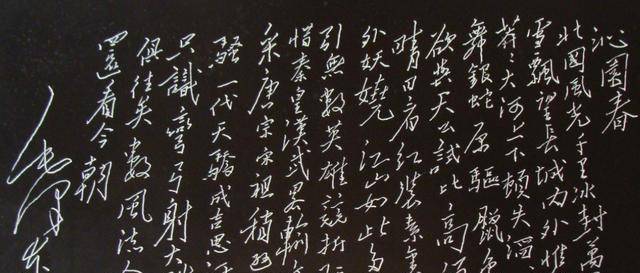 沁園春
北國風光千里冰封萬
雪飄望長城內外惟
莽々大河上下頓失滔
舞銀蛇原驅臘
欲與天公試比高
晴日看紅裝素裹
外妖嬈江山如此多
引無數英雄競折
惜秦皇漢武略輸
采唐宗宋祖稍遜
騷一代天驕成吉思
只識彎弓射大
俱往矣數風流人
還看今朝
毛澤东